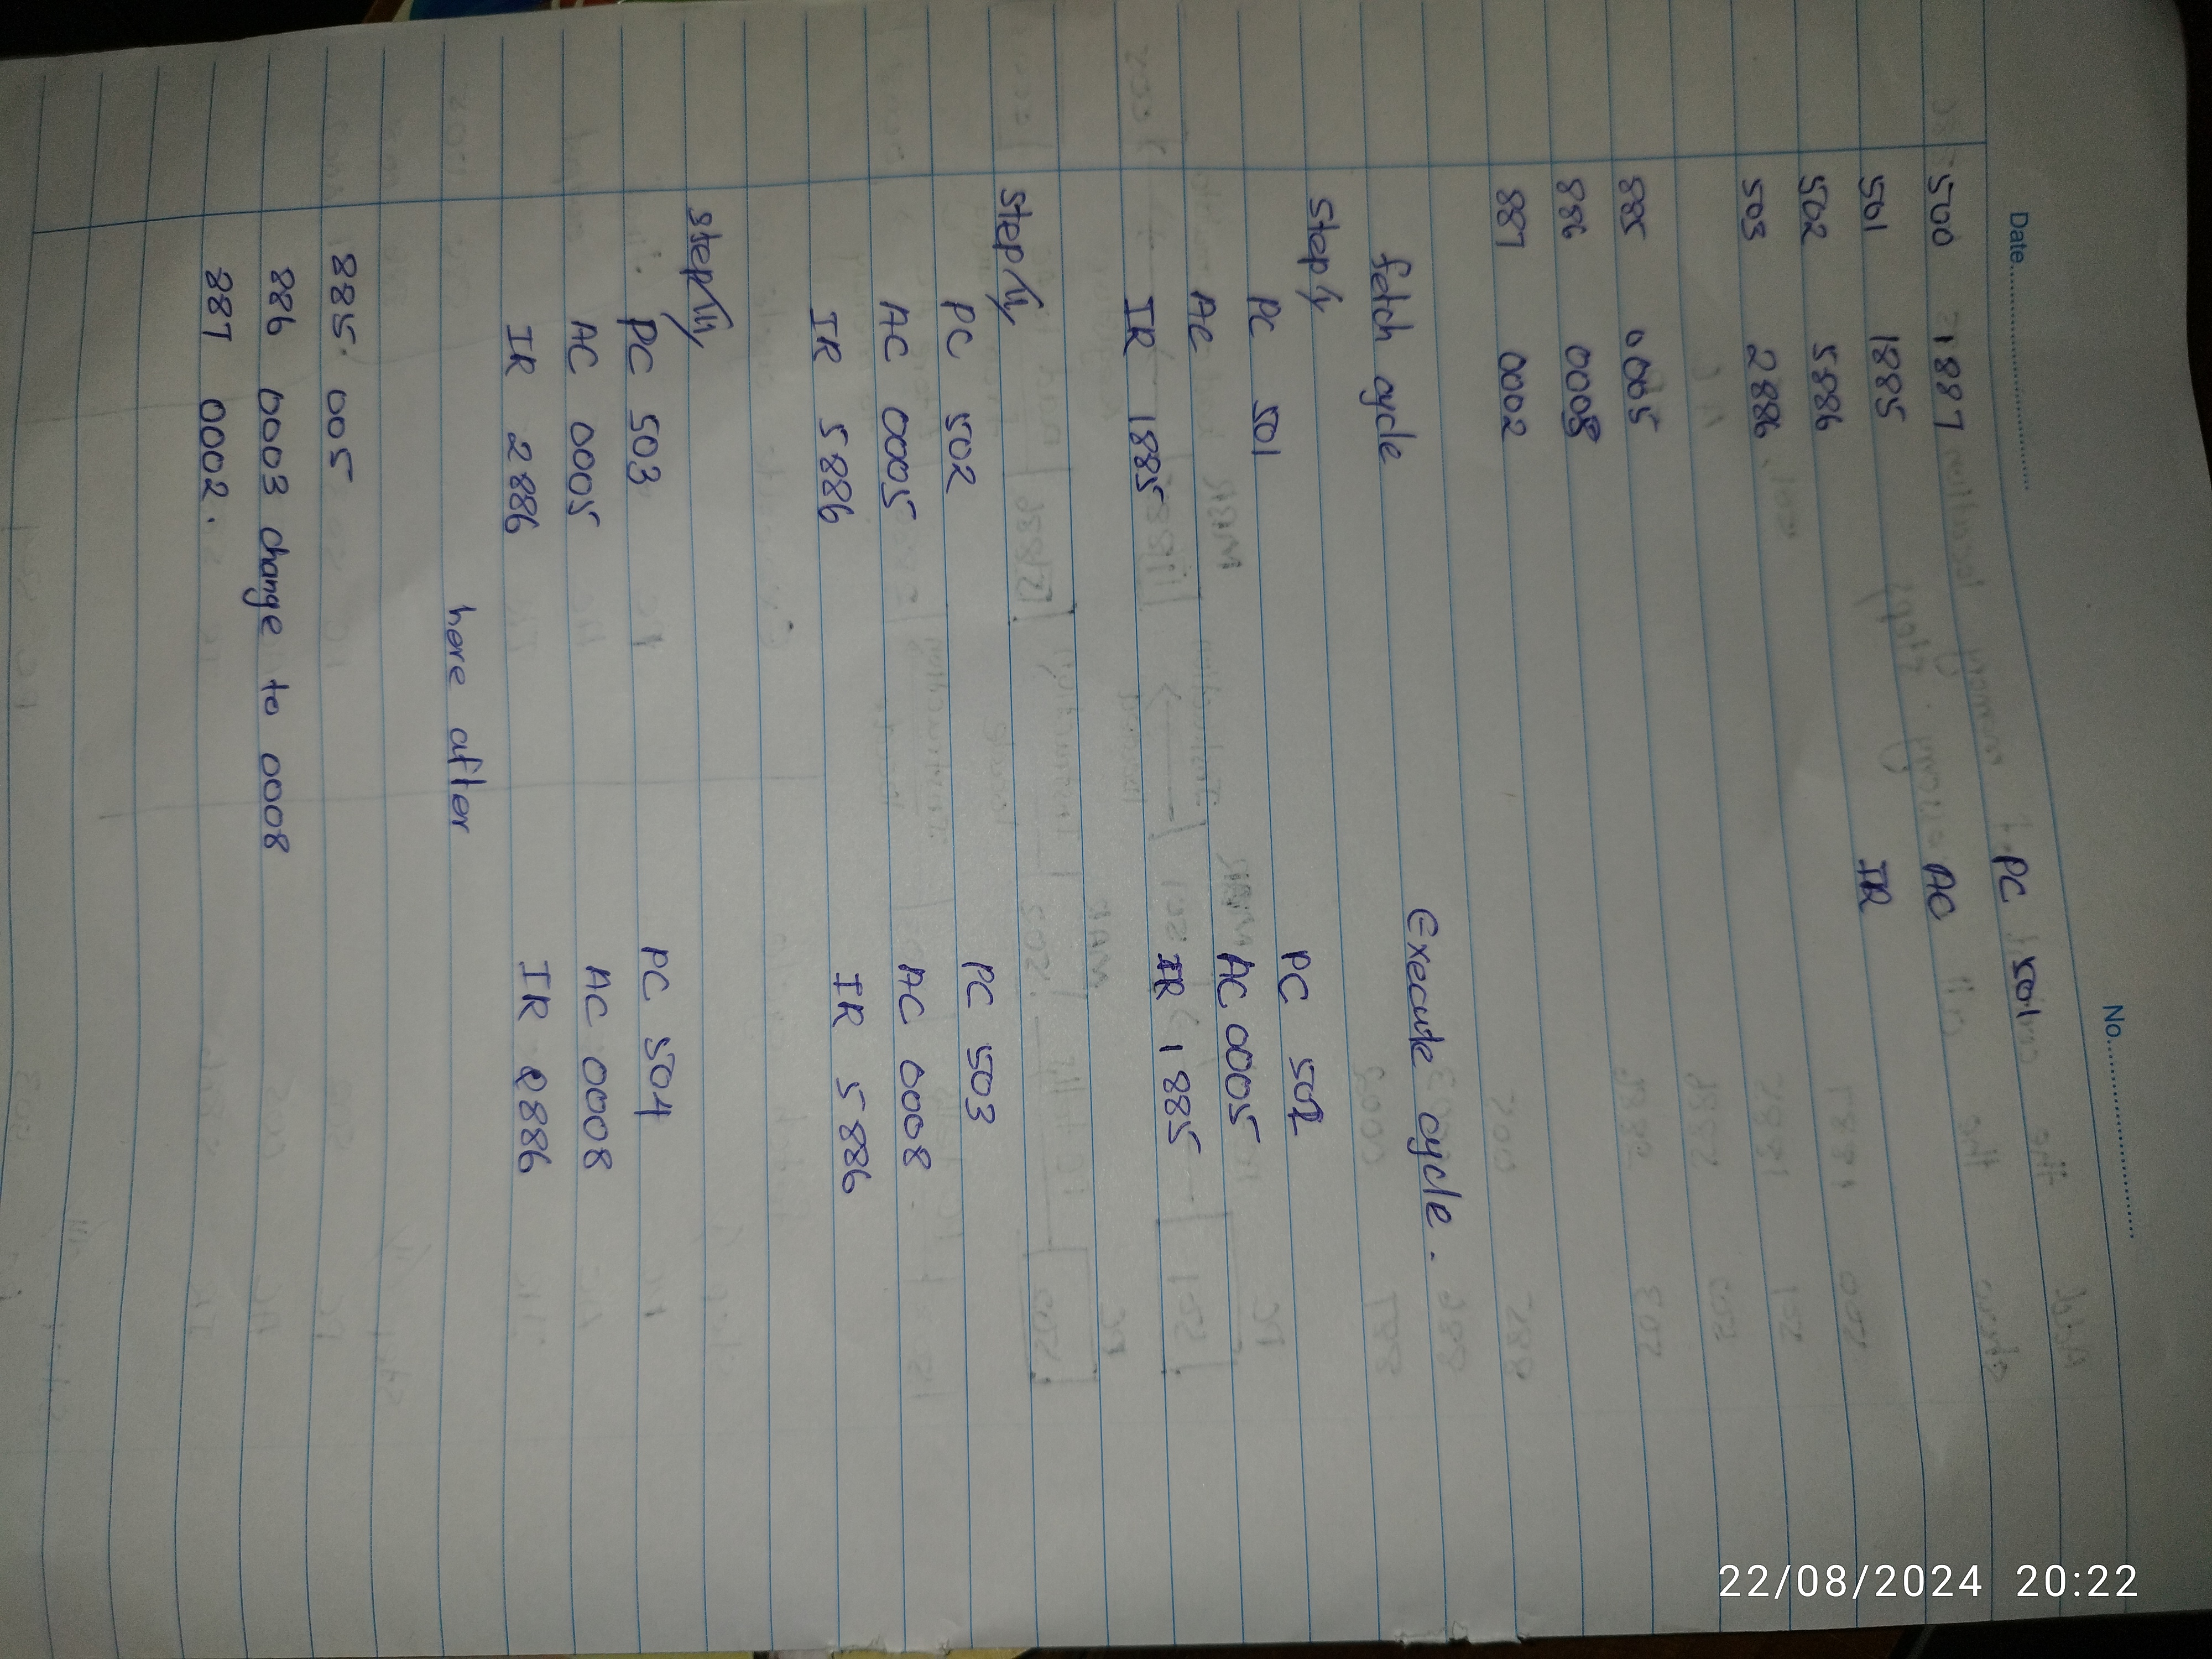 Date.................... No....................
PC 501
500 1887 AC
501 1885 IR
502 5886
503 2886
885 0005
886 0003
887 0002
fetch cycle Execute cycle.
step i/
PC 501 PC 502
AC AC 0005
IR 1885 IR 1885
step ii/
PC 502 PC 503
AC 0005 AC 0008
IR 5886 IR 5886
step iii/
PC 503 PC 504
AC 0005 AC 0008
IR 2886 IR 2886
here after
885. 005
886 0003 change to 0008
887 0002.
22/08/2024 20:22